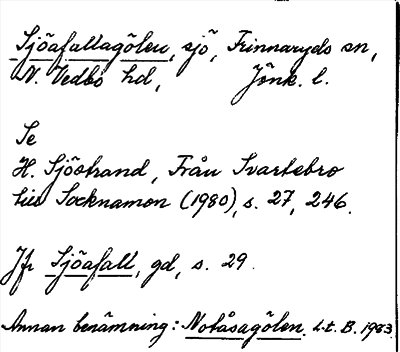 Sjöafallagölen, sjö, Frinnaryds sn,
N. Vedbo hd, Jönk. l.
Se
H. Sjöstrand, Från Svartebro
till Socknamon (1980), s. 27, 246.
Jfr Sjöafall, gd, s. 29.
Annan benämning: Notåsagölen. L.t. B. 1983